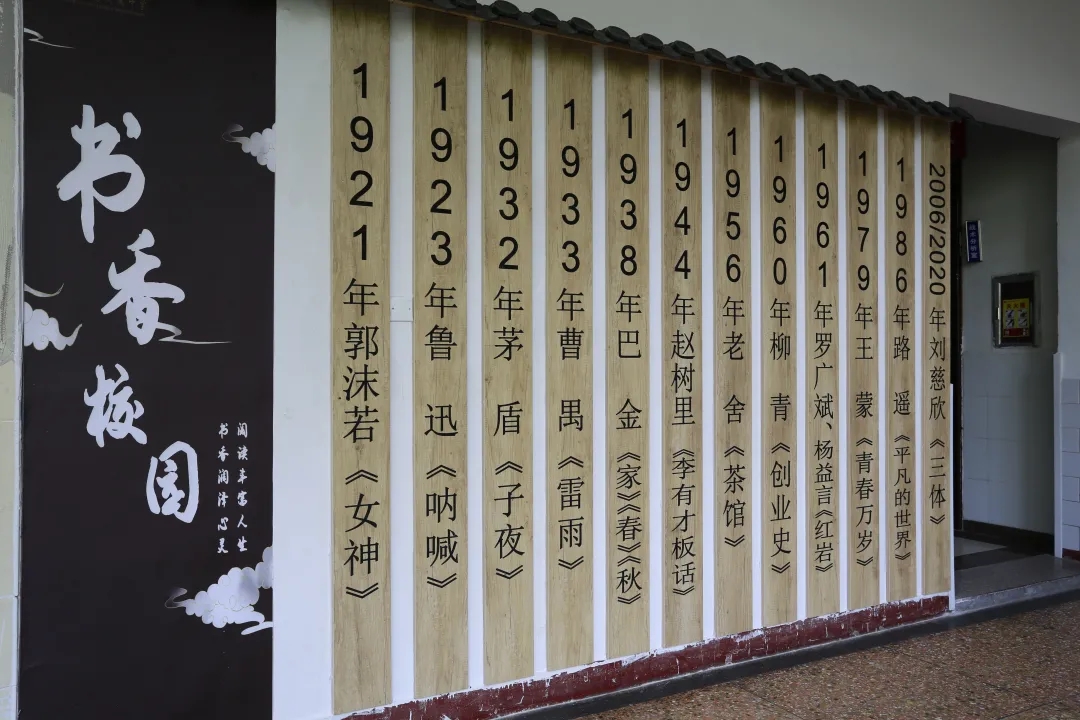 书香校园
阅读丰富人生
书香润泽心灵
1921年郭沫若《女神》
1923年鲁迅《呐喊》
1932年茅盾《子夜》
1933年曹禺《雷雨》
1938年巴金《家》《春》《秋》
1944年赵树里《李有才板话》
1956年老舍《茶馆》
1960年柳青《创业史》
1961年罗广斌、杨益言《红岩》
1979年王蒙《青春万岁》
1986年路遥《平凡的世界》
2006/2020年刘慈欣《三体》